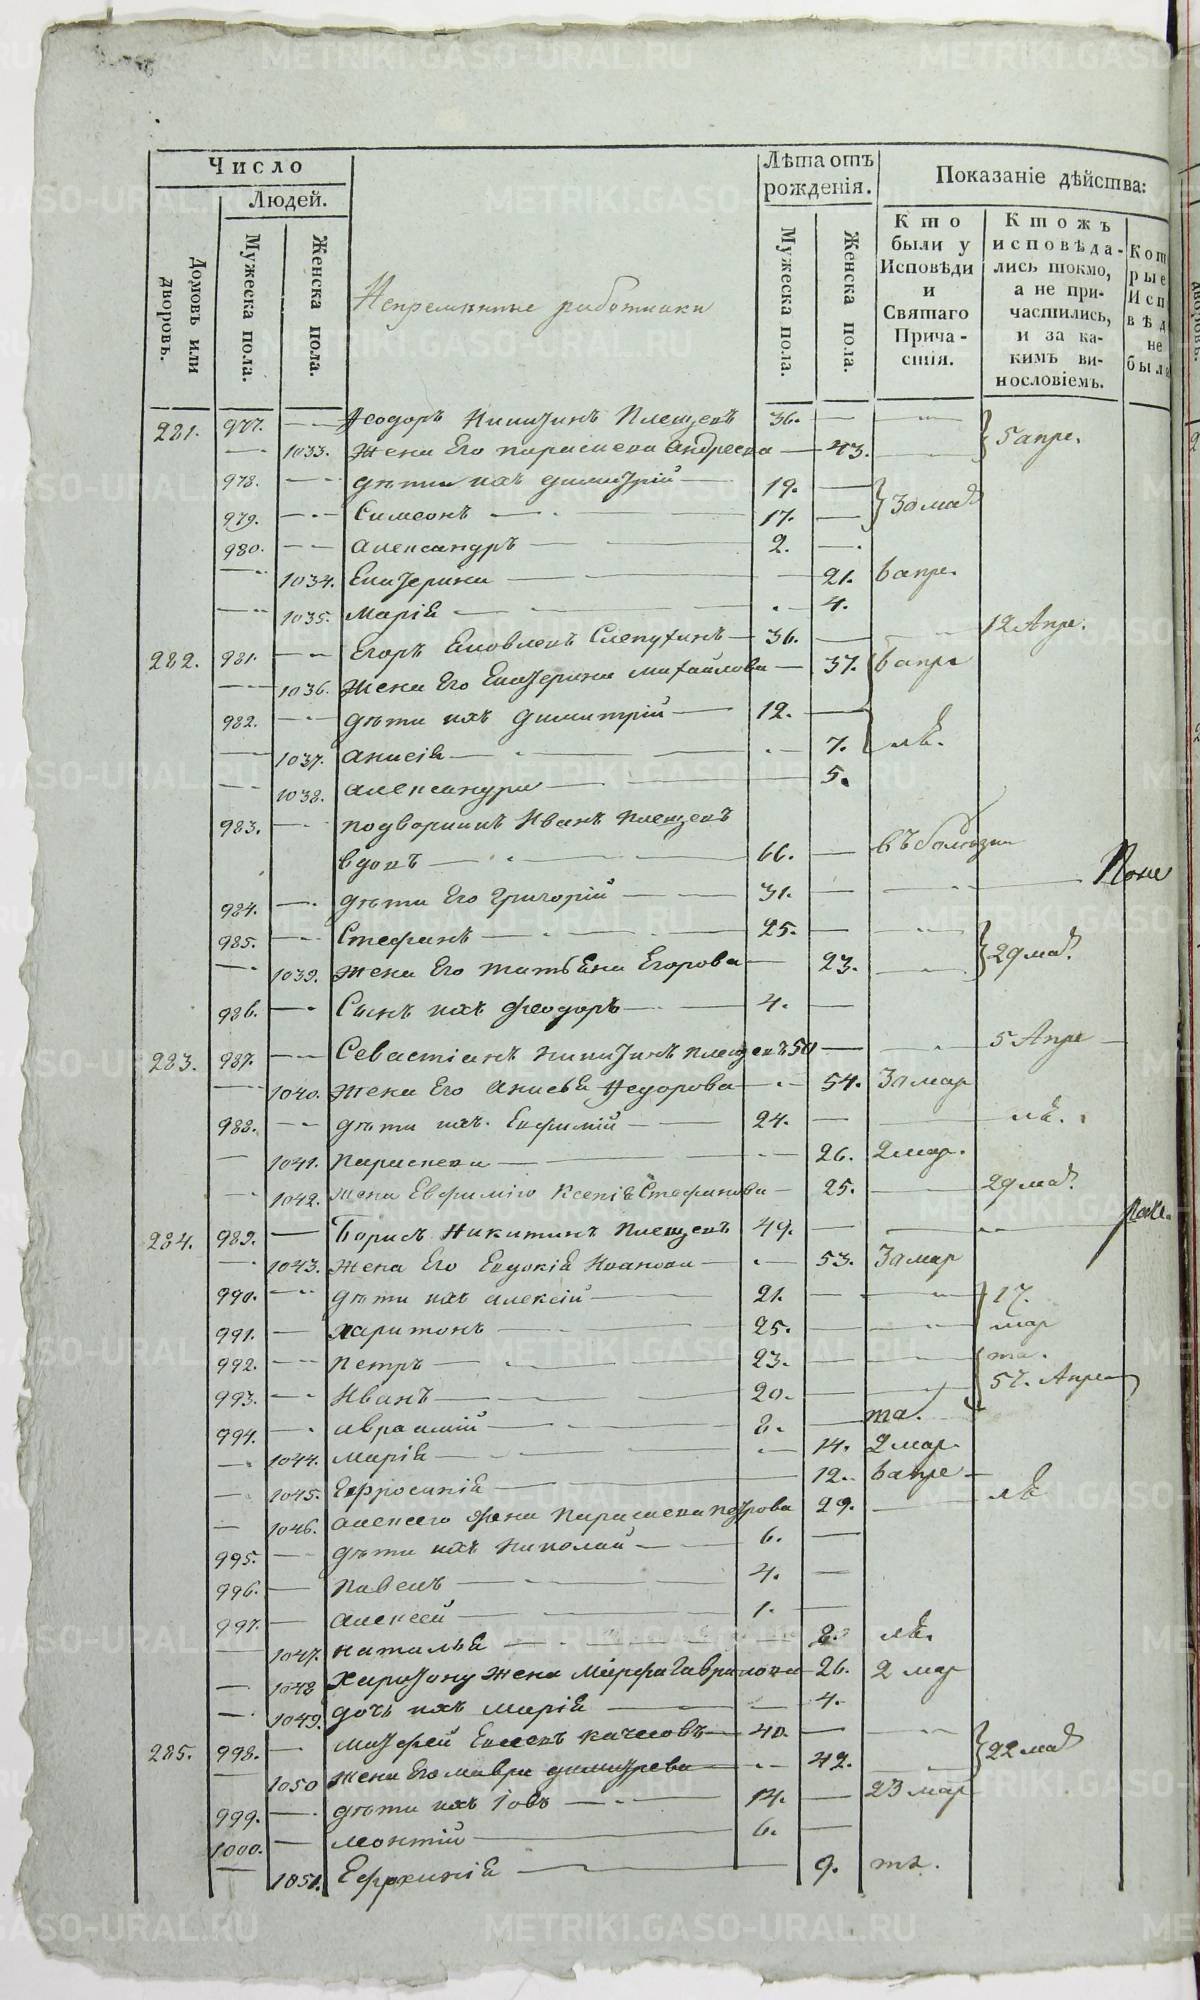 Число
Людей.
Домовъ или дворовъ.
Мужеска пола.
Женска пола.
Непременные работники
Лѣта отъ рожденія.
Мужеска пола.
Женска пола.
Показаніе дѣйства:
Кто были у Исповѣди и Святаго Прича-стія.
Ктожъ исповѣда-лись токмо, а не при-частились, и за ка-кимъ ви-нословіемъ.
Кот рые Исп вѣд не был
281. 977. Феодоръ Никитинъ Плещевъ 36. 5 апре.
1033. Жена Его параскева андреева 43.
978. дѣти ихъ димитрій 19. 30 ма
979. Симеонъ 17.
980. александръ 2.
1034. Екатерина 21. 6 апре.
1035. марія 4.
282. 981. Егоръ Яковлевъ Слепухинъ 36. 12 Апре.
1036. Жена Его Екатерина михайлова 37. 6 апре
982. дѣти ихъ димитрій 12.
1037. анисія 7.
1038. александра 5.
983. подворникъ Иванъ Плещевъ
вдовъ 66. въ болѣзни
984. дѣти Его Григорій 31.
985. Стефанъ 25. 29 ма
1039. жена Его татьяна Егорова 23.
986. Сынъ ихъ феодоръ 4.
283. 987. Севастіанъ никитинъ плещевъ 50 5 Апре
1040. жена Его Федорова 54. 30 мар
988. дѣти ихъ. Евфимій 24.
1041. параскева 26. 2 мар.
1042. жена Евфиміго Ксенія Стефанова 25. 29 ма
284. 989. Борисъ Никитинъ Плещевъ 49.
1043. жена Его Евдокія Иванова 53. 30 мар
990. дѣти ихъ алексій 21. 17.
991. харитонъ 25. мар
992. петръ 23. та.
993. Иванъ 20. Апре
994. авраамій 8. та.
1044. марія 14. 2 мар.
1045. Ефросинія 12. 6 апре
1046. алексего жена Параскева петрова 29.
995. дѣти ихъ николай 6.
996. павелъ 4.
997. алексей 1.
1047. наталья 8.
1048 Харитону жена Марфа Гаврилова 26. 2 мар
1049. дочь ихъ марія 4.
285. 998. матфей качесовъ 40. 22 ма
1050 жена Его мавра димитрева 42.
999. дѣти ихъ Іовъ 14. 23 мар
1000. 6.
1051. 9. та.
METRIKI.GASO-URAL.RU